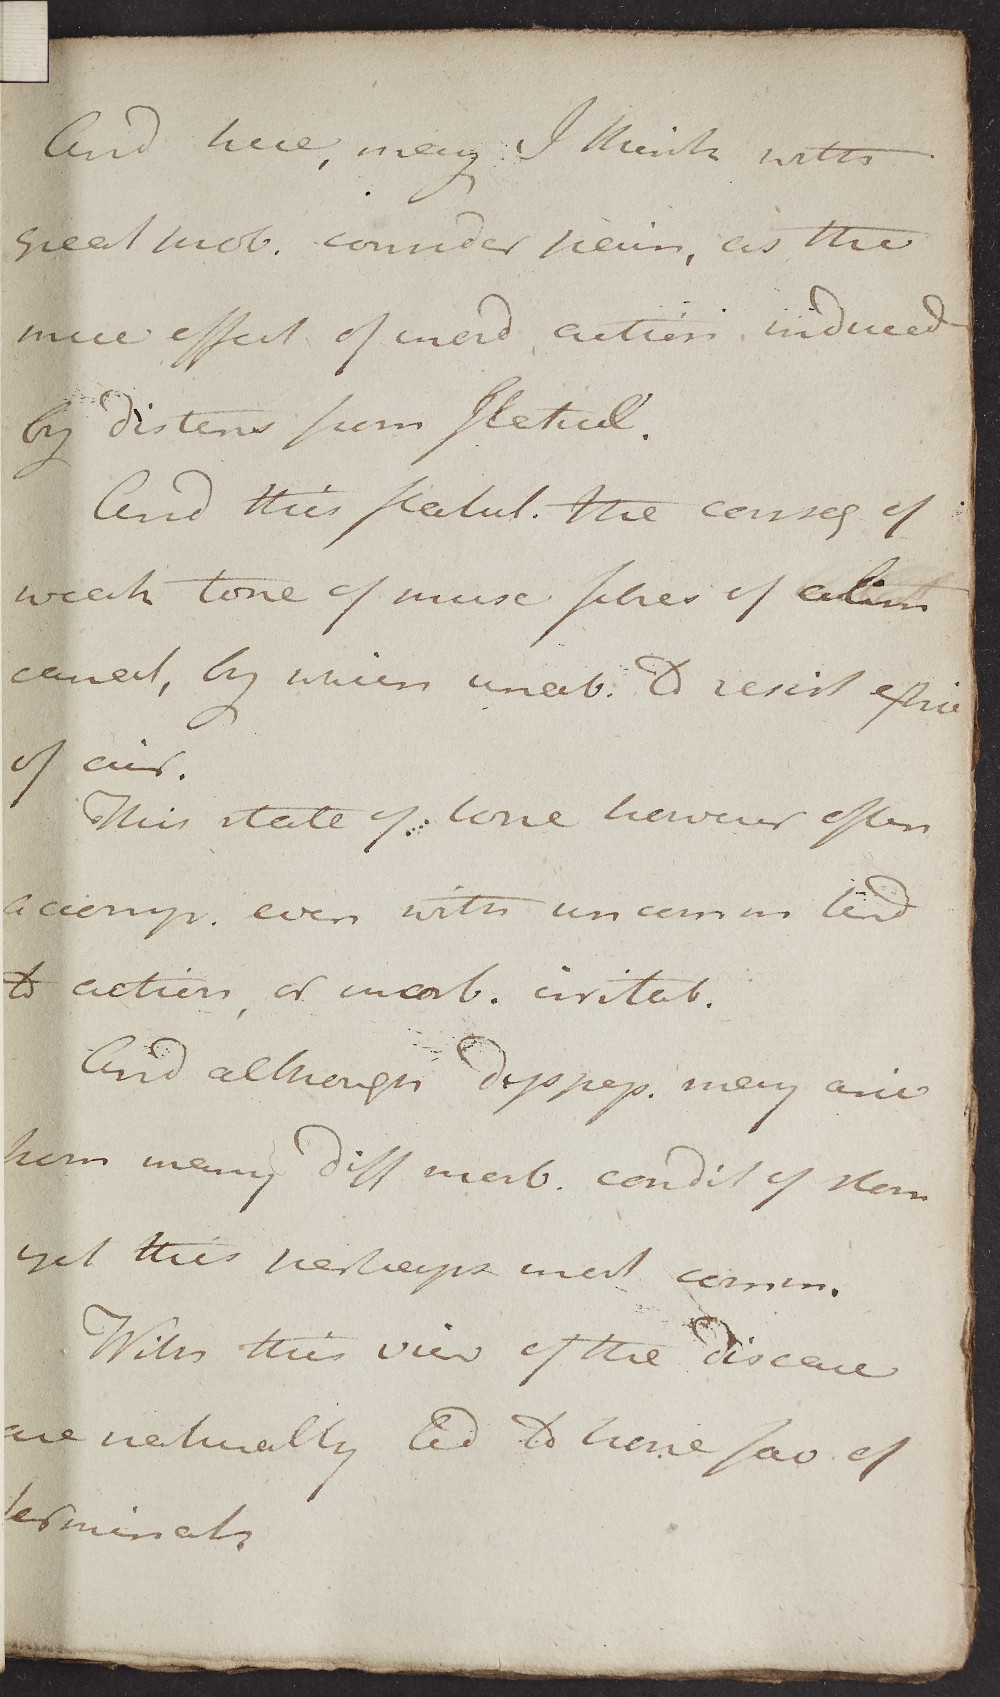 And here, may I think with
great prob. consider pain, as the
mere effect of inord action induced
by distens from flatul.
And this flatul. the conseq of
weak tone of musc fibres of alim
canal, by which unab. to resist
of air.
This state of tone however often
accomp. even with uncomm tend
to action, or morb. irritab.
And although dyspep. may arise
from many diff morb. condit of stom
yet this perhaps most comm.
With this view of the disease
are naturally led to hope fav of
terminat.